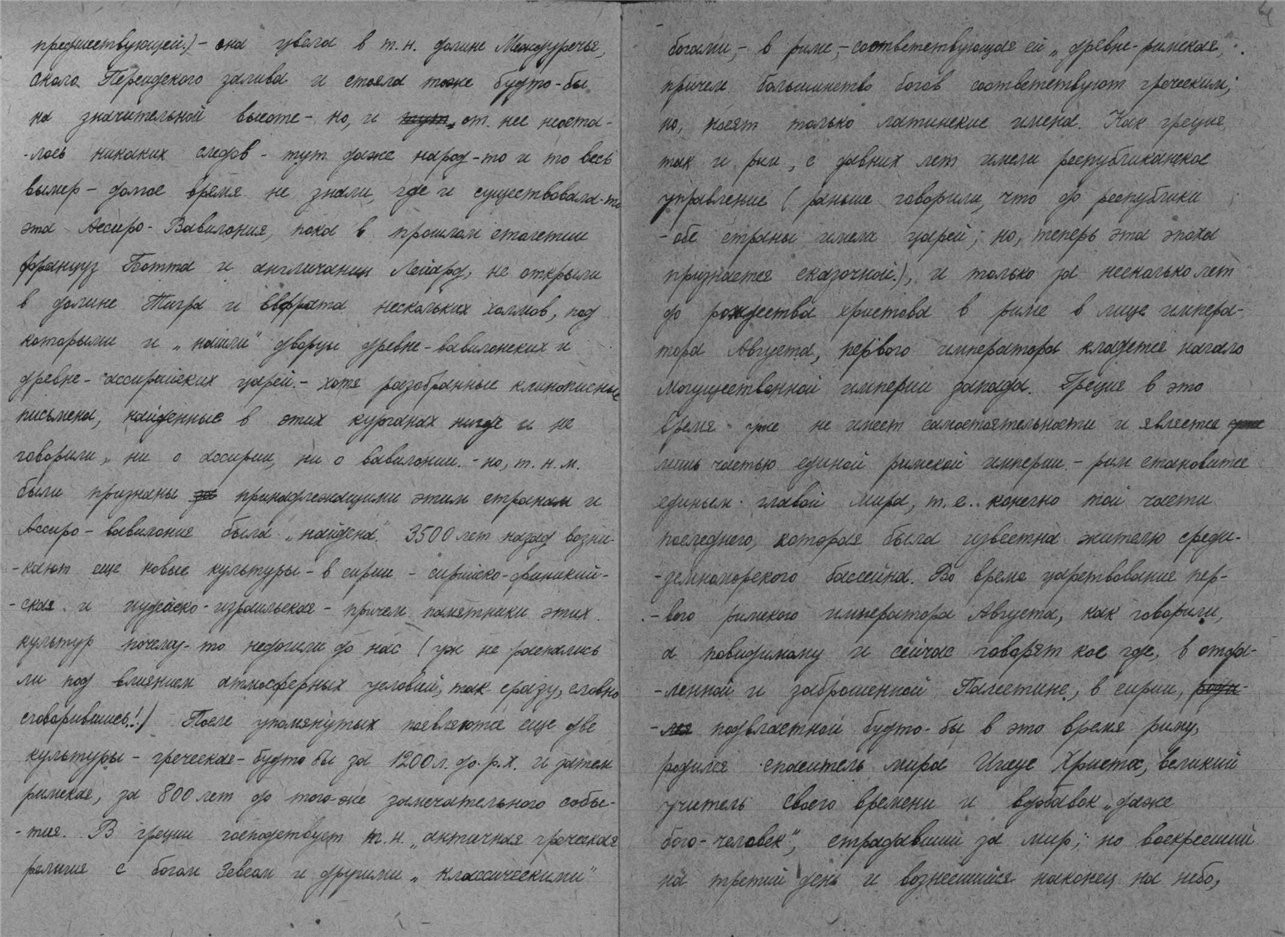 предшествующей.) – она цвела в т.н. долине Междуречья,
около Персидского залива и стояла тоже будто-бы
на значительной высоте – но, и тут, от нее неоста-
-лось никаких следов – тут даже народ-то и то весь
вымер – долгое время не знали, где и существовала-то
эта Ассиро-Вавилония, пока в прошлом столетии
француз Ботта и англичанин Лейард, не открыли
в долине Тигра и Евфрата нескольких холмов, под
которыми и „нашли" дворцы древне-вавилонских и
древне-ассирийских царей. – хотя разобранные клинописные
письмена, найденные в этих курганах нигде и не
говорили, ни о ассирии, ни о вавилонии. – но, т.н.м.
были признаны за принадлежащими этим странам и
Ассиро-вавилония была „найдена". 3500 лет назад возни-
-кают еще новые культуры – в сирии – сирийско-финикий-
-ская и иудейско-израильская – причем памятники этих
культур почему-то недошли до нас (уж не распались
ли под влиянием атмосферных условий, так сразу, словно
сговорившись!) После упомянутых появляются еще две
культуры – греческая – будто бы за 1200 л. до р.х. и затем
римская, за 800 лет до того-же замечательного собы-
-тия. В греции господствует т.н. „античная греческая
религия с богом Зевсом и другими „классическими"
4
богами, – в риме, – соответствующая ей „древне-римская",
причем большинство богов соответствуют греческим;
но, носят только латинские имена. Как греция,
так и рим, с давних лет имели республиканское
управление (раньше говорили, что до республики
– обе страны имели царей; но, теперь эта эпоха
признается сказочной.), и только за несколько лет
до рождества христова в риме в лице импера-
тора Августа, первого императора кладется начало
могущественной империи запада. Греция в это
время уже не имеет самостоятельности и является
лишь частью единой римской империи. – рим становится
единым главой мира, т.е. конечно той части
последнего, которая была известна жителю среди-
-земноморского бассейна. Во время царствования пер-
-вого римского императора Августа, как говорили,
а повидимому и сейчас говорят кое где, в отда-
-ленной и заброшенной Палестине, в сирии,
подвластной будто-бы в это время риму,
родился спаситель мира Исус Христос, великий
учитель своего времени и вдобавок „даже
бого-человек", страдавший за мир; но воскресший
на третий день и вознесшийся наконец на небо,